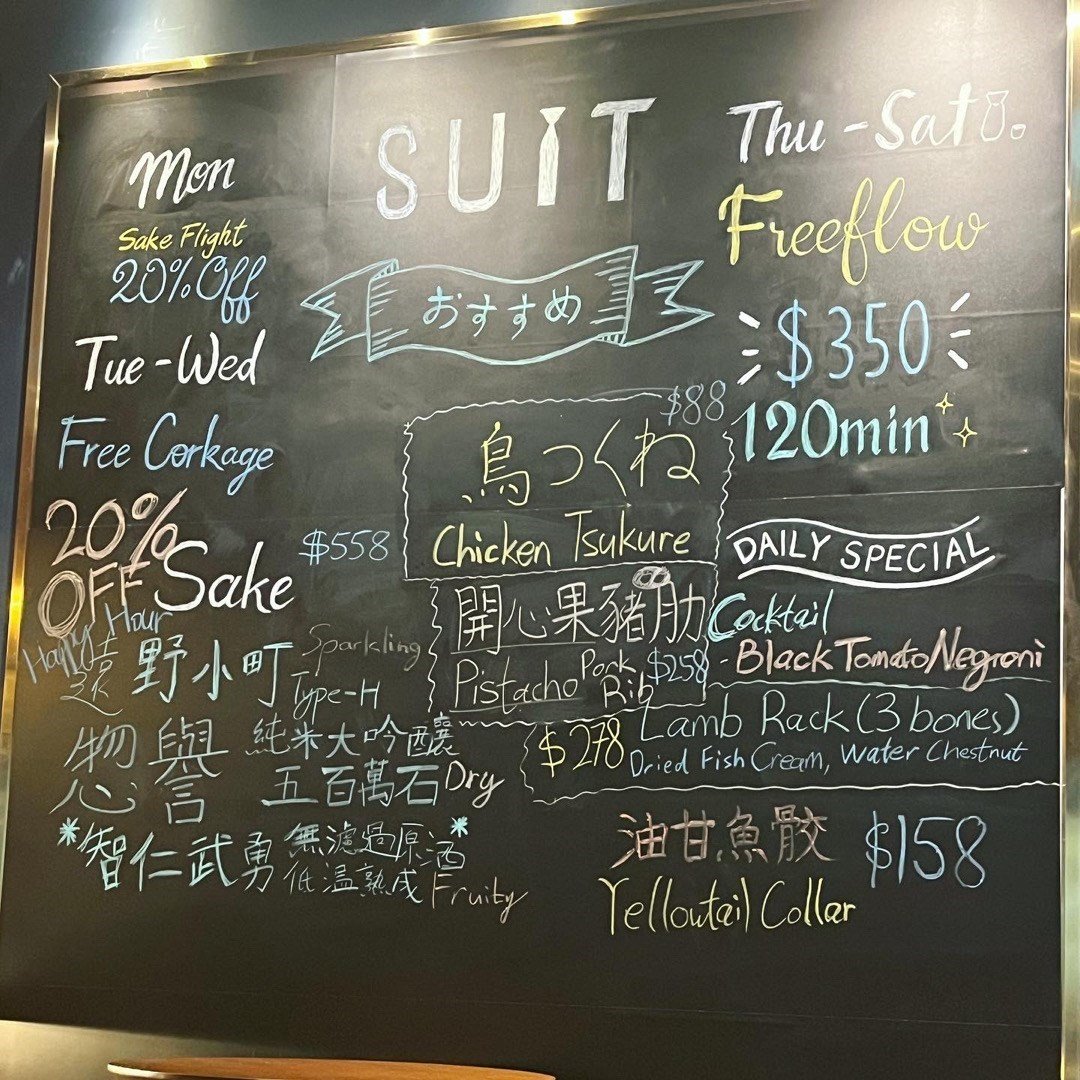 SUIT
おすすめ
Mon
Sake Flight
20% Off
Tue-Wed
Free Corkage
20%
OFF Sake
$558
Happy Hour
野小町
Sparkling
Type-H
惣譽
純米大吟釀
五百萬石 Dry
*智仁武勇
無濾過原酒*
低温熟成 Fruity
$88
鳥つくね
Chicken Tsukure
開心果豬肋
Pistacho Pork Rib $258
Thu-Sat
Freeflow
$350
120min
DAILY SPECIAL
Cocktail
- Black Tomato Negroni
$278 Lamb Rack (3 bones)
Dried Fish Cream, Water Chestnut
油甘魚骹 $158
Yellowtail Collar